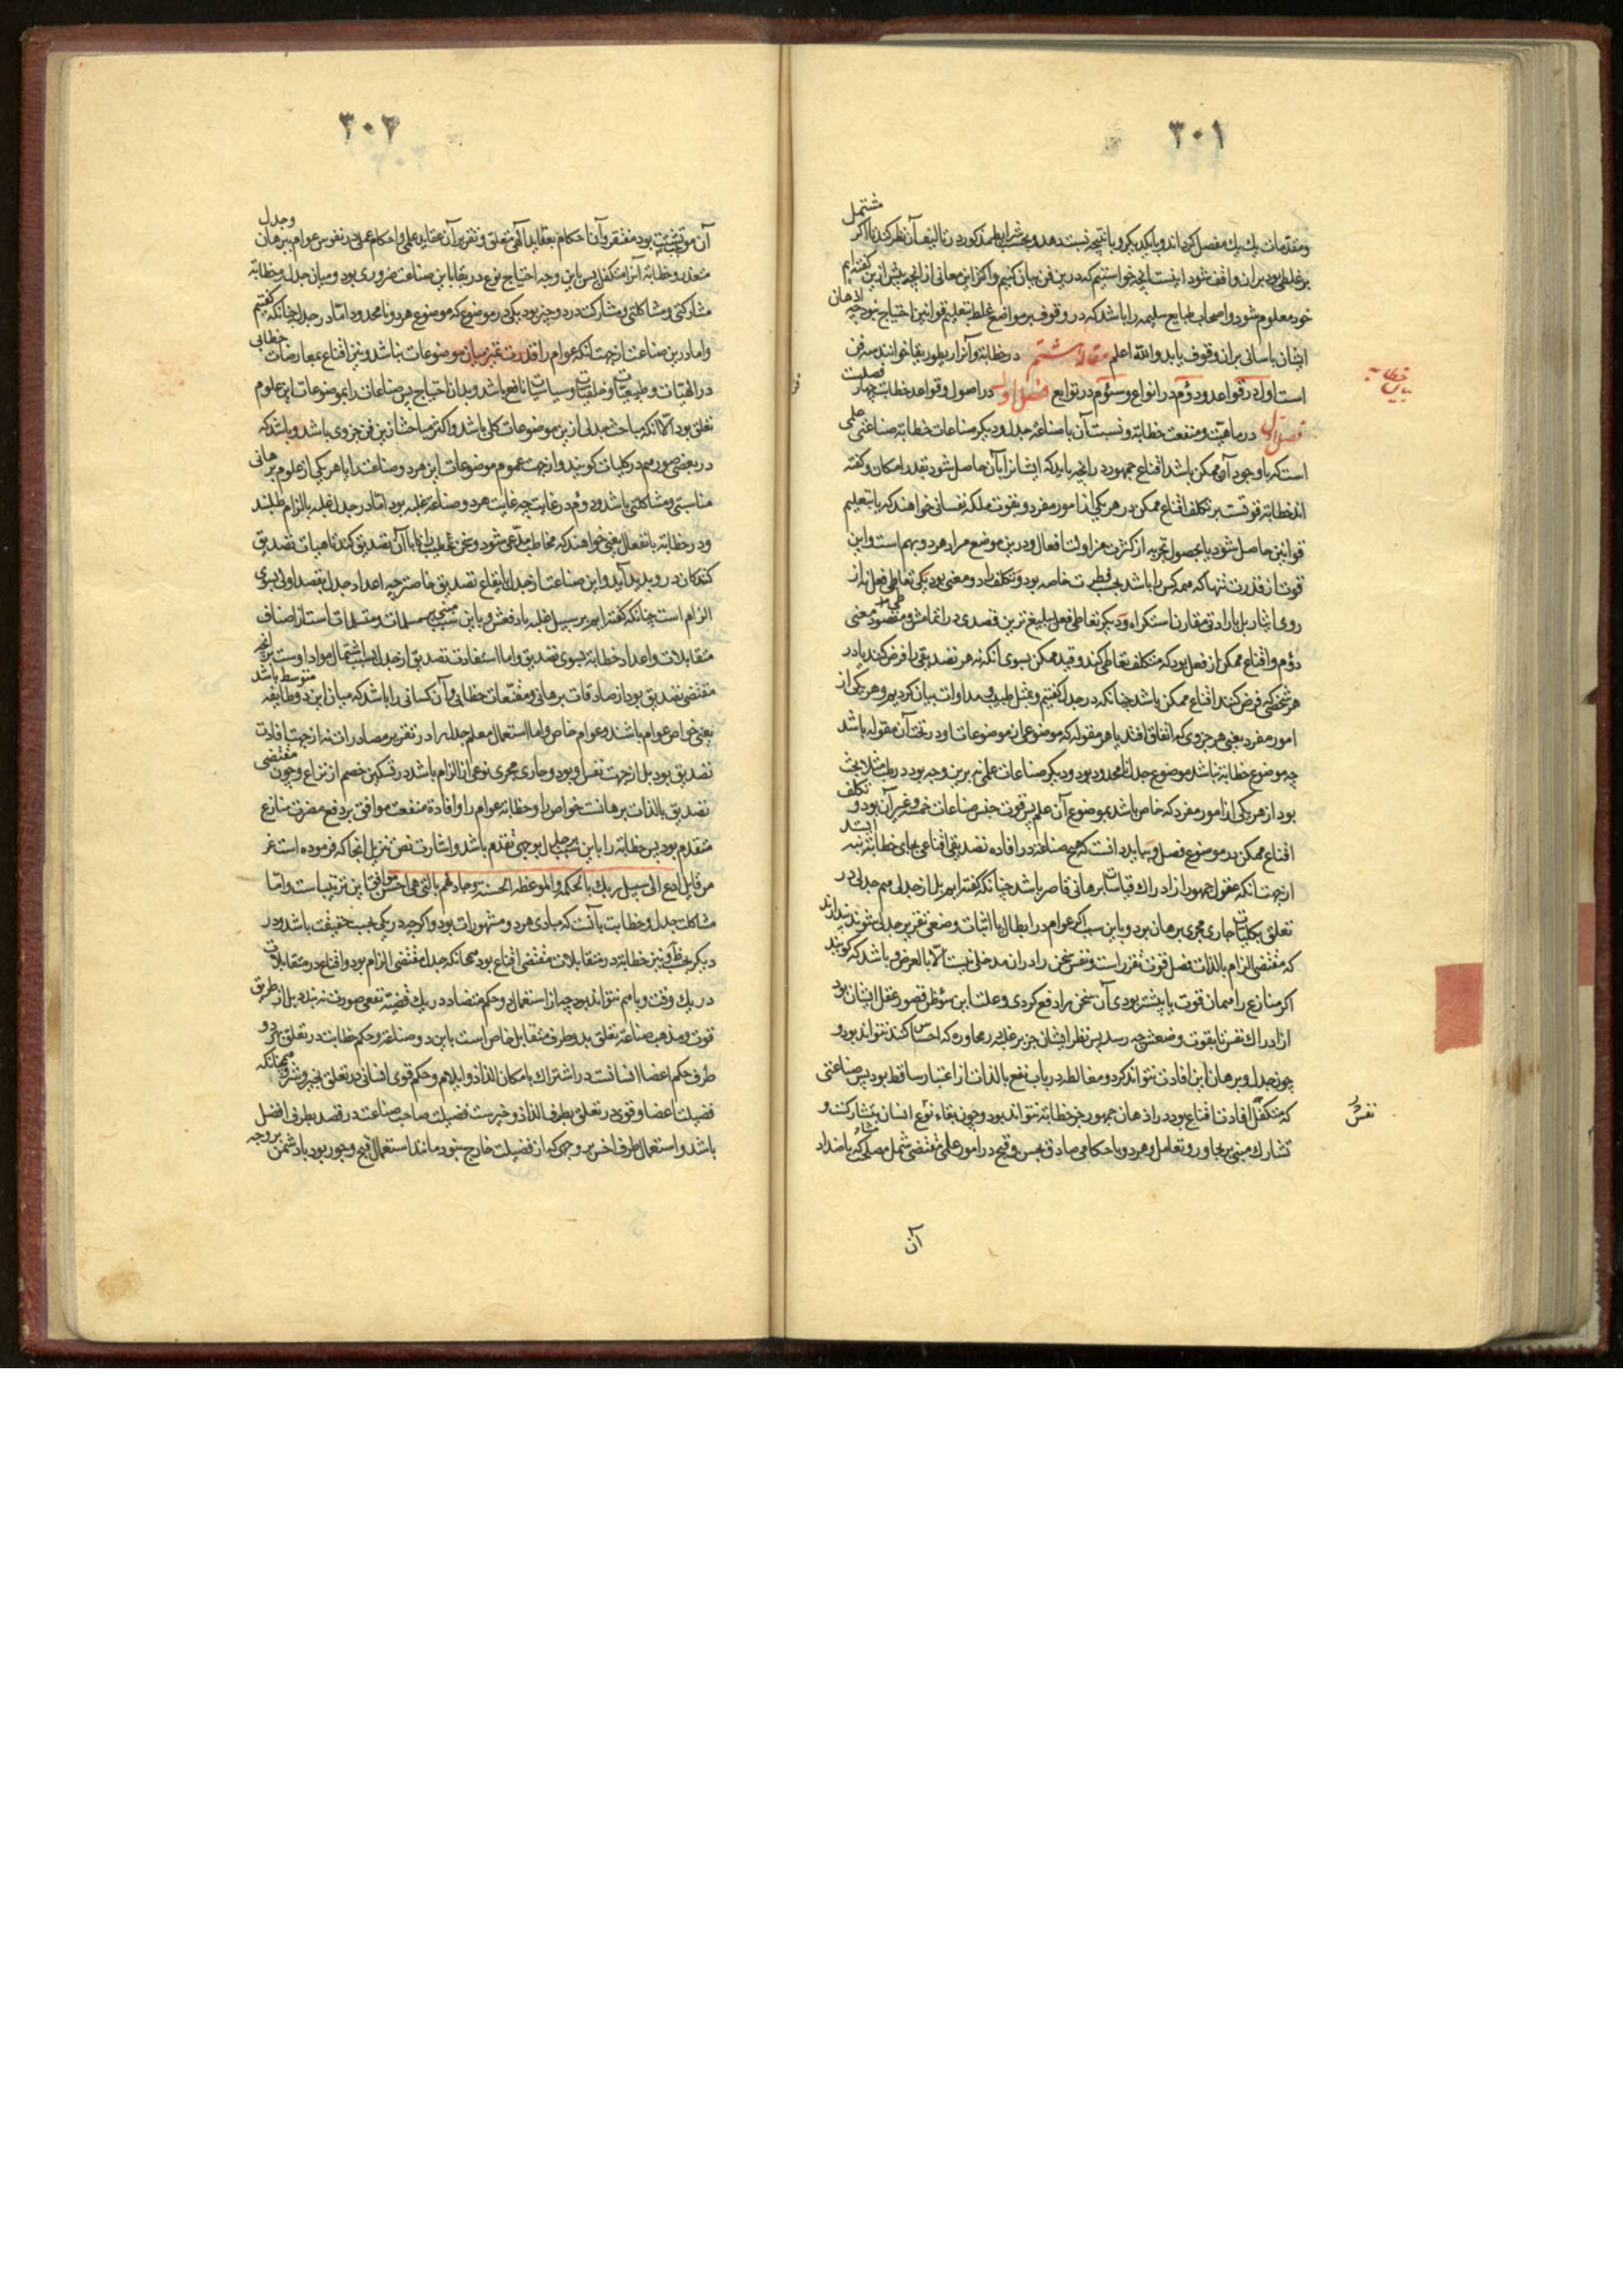 ۳۰۱
مشتمل
و مقدمات یك یك مفصل کرداند و با یکدیکر و با نتیجه نسبت دهد و بحسب شرایط مذکور در تالیف آن نظر کند تا اکر
بر غلطی بود بران واقف شود اینست انچه خواستیم که درین فن بیان کنیم و اکثر این معانی از انچه پیش ازین کفته ایم
خود معلوم شود و اصحاب طبایع سلیمه را باشد که در وقوف بر مواضع غلط بتعلیم قوانین احتیاج نبود چه اذهان
ایشان باسانی بران وقوف یابد والله اعلم مقالۀ هشتم در خطابة و آنرا ریطوریقا خوانند سه فن
است اول در قواعد و دوم در انواع و سوم در توابع فن اول در اصول و قواعد خطابت چهار فصلست
فصل اول در ماهیت و منفعت خطابة و نسبت آن با صناعة جدل و دیکر صناعات خطابة صناعتی علمی
است که با وجود آن ممکن باشد اقناع جمهور در انچه باید که ایشانرا بآن حاصل شود بقدر امکان و کفته
اند خطابة قوتست بر تکلف اقناع ممکن در هر یکی از امور مفرد و بقوت ملکه نفسانی خواهند که یا بتعلیم
قوانین حاصل شود یا بحصول تجربه از کثرت مزاولت افعال و درین موضع مراد هر دو بهم است و این
قوت از قدرت تنها که همه کس را باشد بحسب فطرت خاصه بود و تکلف را دو معنی بود یکی تعاطی فعل نه از
روی ایثار بل بارادتی مقارن استکراه و دیکر تعاطی فعل ببلیغ ترین قصدی در اتمامش و مقصود معنی
دوم و اقناع ممکن از فعل بود که متکلف تعاطی کند و قید ممکن بسوی انکه نه هر تصدیقی را فرض کند یا در
هر شخصی که فرض کند اقناع ممکن باشد چنانکه در جدل کفتیم و بمثل طبیب و مداوات بیان کردیم و هر یکی از
امور مفرد یعنی هر جزوی که اتفاق افتد یا هر مقوله که موضوعی از موضوعات او در تحت آن مقوله باشد
چه موضوع خطابة نباشد موضوع جدل نامحدود بود و دیکر صناعات علمی نه برین وجه بود در طب مثلا بحث
بود از هر یکی از امور مفرد که خاص باشد بموضوع آن علم پس قوت جنس صناعات خمسه و غیر آن بود و تکلف
اقناع ممکن بر موضوع فصل و بباید دانست که هیچ صناعة در افاده تصدیق اقناعی بجای خطابة نه
ازجهت انکه عقول جمهور از ادراك قیاسات برهانی قاصر باشد چنانکه کفته ایم بل از جدلی هم چه جدل در
تعلق بکلیات جاری مجری برهان بود و باین سبب اکر عوام در ابطال یا اثبات وضعی تقریر جدلی شنوند پندارند
که مقتضی الزام بالذات فضل قوت مقرر است و نفس سخن را دران مدخلی نیست الا بالعرض و باشد که کویند
اکر منازع را همان قوت یا بیشتر بودی آن سخن را دفع کردی و علت این سوء ظن قصور عقل ایشان بود
از ادراك نفس تا بقوت و ضعفش چه رسد پس نظر ایشان جز بر غلبه در محاوره که احساس کنند نتواند بود و
چون جدل و برهان این افادت نتواند کرد و مغالطه در باب نفع بالذات از اعتبار ساقط بود پس صناعتی
که متکفل افادت اقناع بود در اذهان جمهور جز خطابة نتواند بود و چون بقاء نوع انسان بتشارکست و
تشارك مبنی بر تجاور و تعامل و هر دو با حکامی صادق بحسن و قبح در امور عملی مقتضی شمل مصلحت که باضداد
خطابه
نفس
آن
۳۰۲
آن مو تشتت بود مفتقر و آن احکام بعقاید الهی متعلق و تقریر آن عقاید علمی و احکام عملی در نفوس عوام ببرهان و جدل
متعذر و خطابة آنرا متکفل پس باین وجه احتیاج نوع در بقا باین صناعت ضروری بود و میان جدل و خطابة
مشارکتی و مشاکلتی و مشارکت در دو چیز بود یکی در موضوع که موضوع هر دو نامحدود اما در جدل چنانکه کفتیم
و اما درین صناعت ازجهت انکه عوام را قدرت تمیز میان موضوعات نباشد و نیز اقناع بمعارضات خطابی
در الهیات و طبیعیات و خلقیات و سیاسیات نافع باشد و بدان احتیاج پس صناعات را بموضوعات این علوم
تعلق بود الا انکه مباحث جدلی ازین موضوعات کلی باشد و اکثر مباحث این فن جزوی باشد و باشد که
در بعضی صور هم در کلیات کویند و ازجهت عموم موضوعات این هر دو صناعت را با هر یکی از علوم برهانی
مناسبتی و مشاکلتی باشد و دوم در غایت چه غایت هر دو صناعة غلبه بود اما در جدل غلبه بالزام طلبند
و در خطابة بانفعال یعنی خواهند که مخاطب مدعی شود و سخن خطیب را تا بآن تصدیق کند تا هیات تصدیق
کنندکان در وی پدید آید و این صناعت از جدل بایقاع تصدیق خاصتر چه اعداد جدل بقصد اولی بسوی
الزام است چنانکه کفته ایم بر سبیل غلبه یا دفعش و باین سبب مبنی بر مسلمات و متسلمات است از اصناف
متقابلات و اعداد خطابة بسوی تصدیق و اما استفادت تصدیق از جدل بسبب اشتمال مواد اوست بر انچه
مقتضی تصدیق بود از صادقات برهانی و مقنعات خطابی و آن کسانی را باشد که میان این دو طایفه متوسط باشند
یعنی خواص عوام باشند و عوام خاص و اما استعمال معلم جدل را در تقریر مصادرات نه ازجهت افادت
تصدیق بود بل ازجهت تقبل و بود و جاری مجری نوعی از الزام باشد در تسکین خصم از نزاع و چون مقتضی
تصدیق بالذات برهانست خواص را و خطابة عوام را و افادۀ منفعت موافق بر دفع مضرت منازع
متقدم بود پس خطابة را باین سبب بر جدل بوجهی تقدم باشد و اشارت نص تنزیل انجا که فرموده است عز
من قایل ادع الی سبیل ربك بالحکمة والموعظة الحسنة وجادلهم بالتی هی احسن موافق این ترتیب است و اما
مشاکلت جدل و خطابت بآنست که مبادی هر دو مشهورات بود و اکر چه در یکی بحسب حقیقت باشد و در
دیکر بحسب ظن و نیز خطابة در متقابلات مقتضی اقناع بود همچنانکه جدل مقتضی الزام بود و اقناع در متقابلات
در یك وقت و با هم نتواند بود چه از استعمال دو حکم متضاد در یك قضیه نفعی صورت نه بندد بل از طریق
قوت و مذهب صناعة تعلق بدو طرف متقابل خاص است باین دو صناعة و حکم خطابت در تعلق بهر دو
طرف حکم اعضا انسانست در اشتراك با مکان الذاذ و ایلام و حکم قوی انسانی در تعلق بخیر و شر و همچنانکه
فضیلت اعضا و قوی در تعلق بطرف الذاذ و خیرست فضیلت صاحب صناعت در قصد بطرف افضل
باشد و استعمال طرف اخس بر وجهی که از فضیلت خارج نبود مانند استعمال قبح و جور بود با دشمن بر وجه